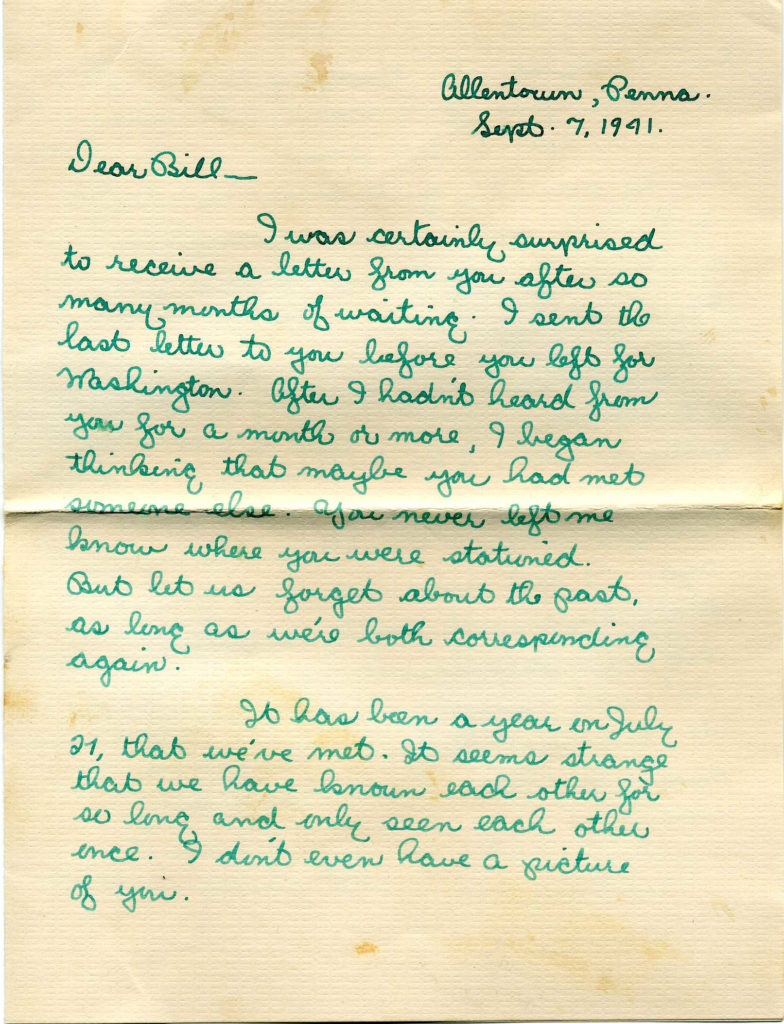 Allentown, Penna.
Sept. 7, 1941.
Dear Bill—
I was certainly surprised
to receive a letter from you after so
many months of waiting. I sent the
last letter to you before you left for
Washington. After I hadn't heard from
you for a month or more, I began
thinking that maybe you had met
someone else. You never left me
know where you were stationed.
But let us forget about the past,
as long as we're both corresponding
again.
It has been a year on July
21, that we've met. It seems strange
that we have known each other for
so long, and only seen each other
once. I don't even have a picture
of you.